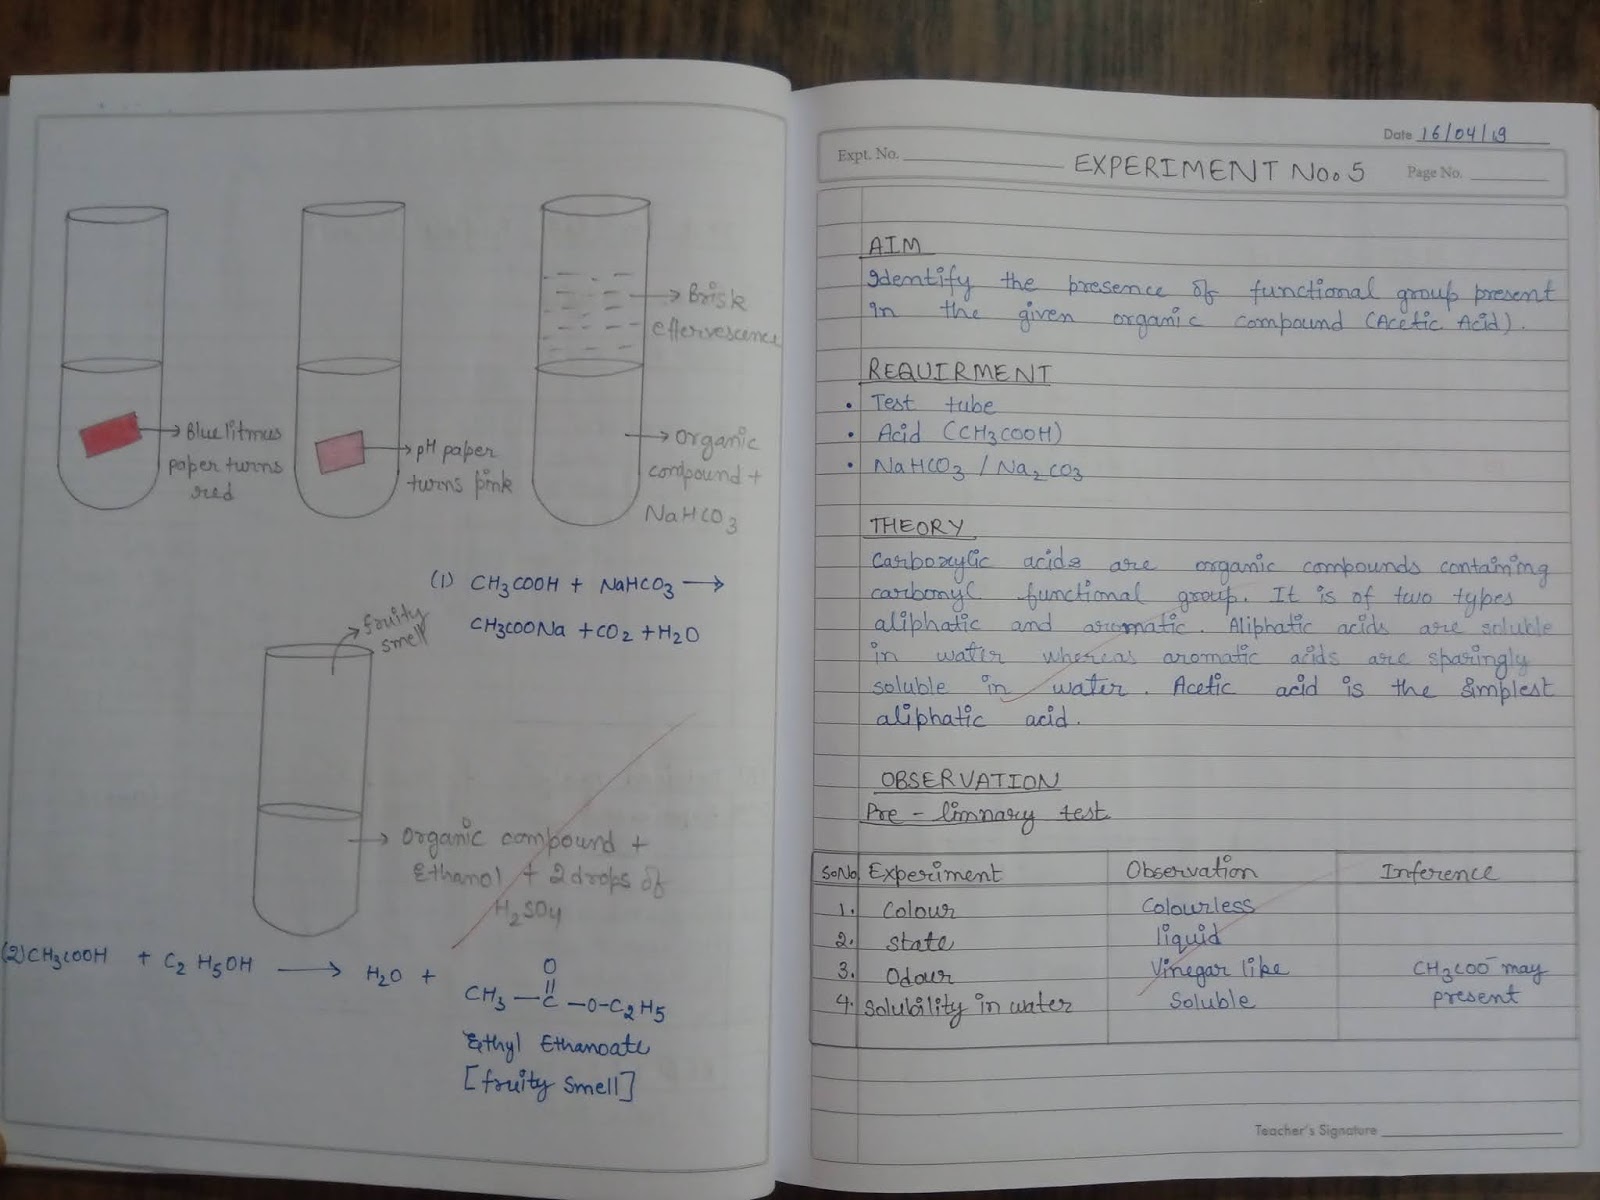 Blue litmus
paper turns
red
pH paper
turns pink
Brisk
effervescence
Organic
compound +
NaHCO3
(1) CH3COOH + NaHCO3 →
CH3COONa + CO2 + H2O
fruity
smell
Organic compound +
Ethanol + 2 drops of
H2SO4
(2) CH3COOH + C2H5OH → H2O +
O
||
CH3 — C — O — C2H5
Ethyl Ethanoate
[fruity smell]
Date 16/04/19
Expt. No. EXPERIMENT No. 5 Page No.
AIM
Identify the presence of functional group present
in the given organic compound (Acetic Acid).
REQUIRMENT
• Test tube
• Acid (CH3COOH)
• NaHCO3 / Na2CO3
THEORY
Carboxylic acids are organic compounds containing
carbonyl functional group. It is of two types
aliphatic and aromatic. Aliphatic acids are soluble
in water whereas aromatic acids are sparingly
soluble in water. Acetic acid is the simplest
aliphatic acid.
OBSERVATION
Pre - limnary test
S.No Experiment Observation Inference
1. Colour Colourless
2. State liquid
3. Odour Vinegar like CH3COO⁻ may
4. Solubility in water Soluble present
Teacher's Signature